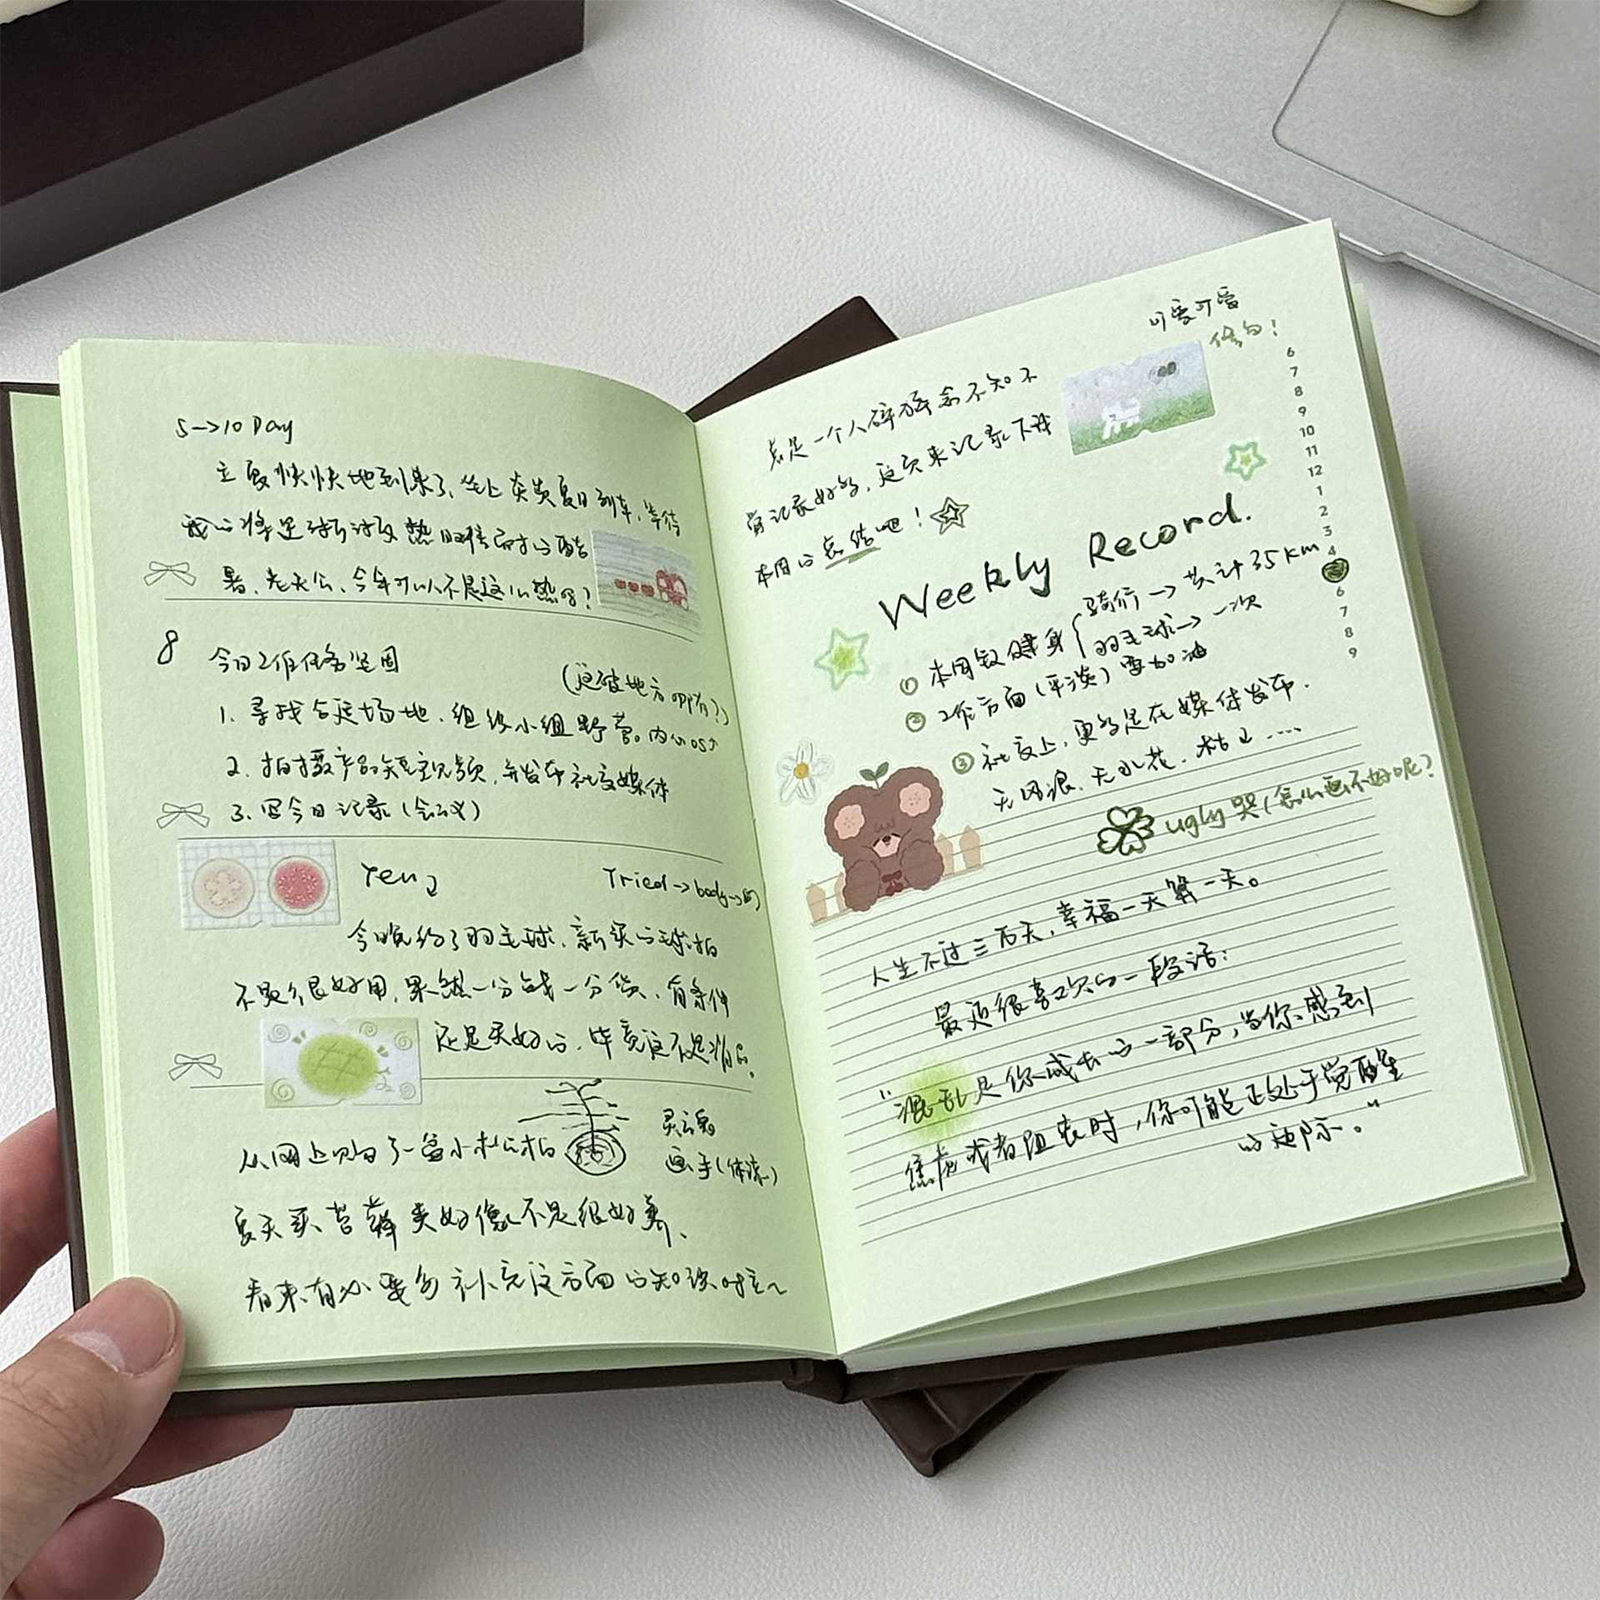 5→10 Day
主夏快快地到来了，坐上炎炎夏日列车，等待
我的将是渐渐热
暑，老天公，今年可以不是这么热吗？
8 今日工作任务
(这破地方哪有？)
1. 寻找合适场地，组织小组野营。内心os
2. 拍摄产品短视频，并发布社交媒体
3. 写今日记录(会议)
Tried→body→
今晚约了羽毛球，新买的球拍
不是很好用，果然一分钱一分货，有条件
还是买好的，毕竟这不是消
从网上购了一盆小松柏
灵魂
画手(体谅)
夏天买苔藓类好像不是很好养、
看来有必要多补充这方面的知识
可爱可爱
总是一个人碎碎念不知不
觉记录好多，这页来记录下我
本周的总结吧！
Weekly Record.
① 本周锻健身
骑行→共计35km
羽毛球→一次
② 工作方面(平淡)要加油
③ 社交上，更多是在媒体发布.
无网混、无水花、
ugly 哭，怎么画不好呢？
6
7
8
9
10
11
12
1
2
3
4
6
7
8
9
人生不过三万天，幸福一天算一天。
最近很喜欢的一段话：
"混乱是你成长的一部分，当你感到
焦虑或者沮丧时，你可能正处于觉醒
的边际。"